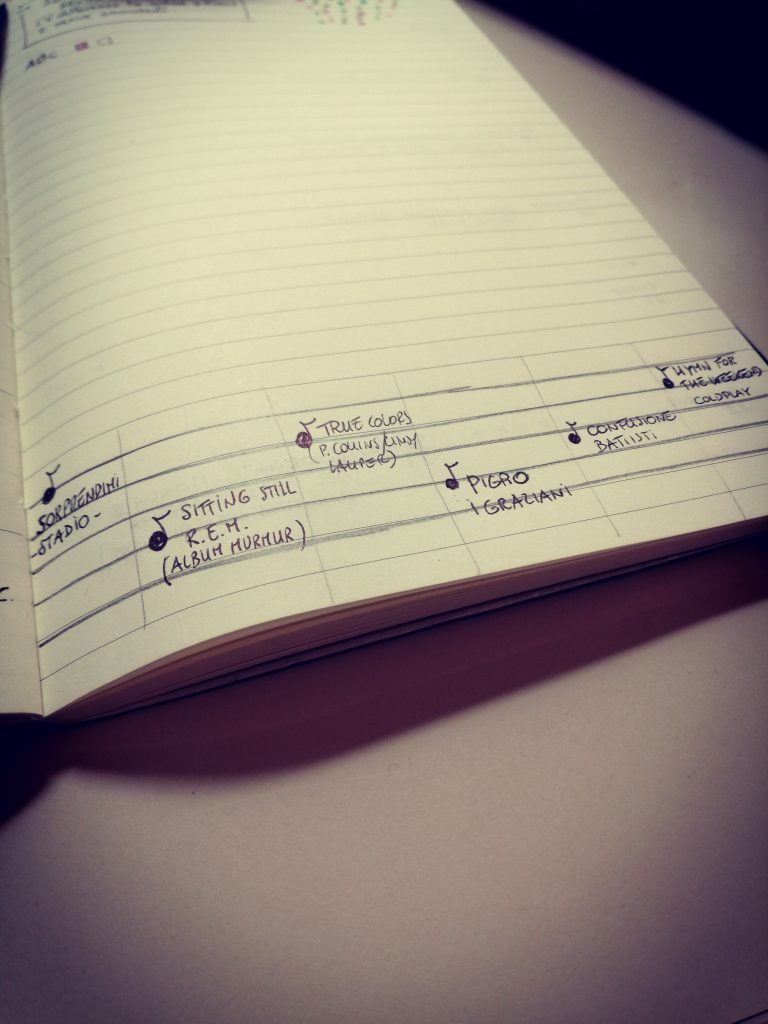 ABC
SORPRENDIMI
STADIO -
SITTING STILL
R.E.M.
(ALBUM MURMUR)
TRUE COLORS
(P. COLLINS/CINDY
LAUPER)
PIGRO
I GRAZIANI
CONFUSIONE
BATTISTI
HYMN FOR
THE WEEKEND
COLDPLAY
C.